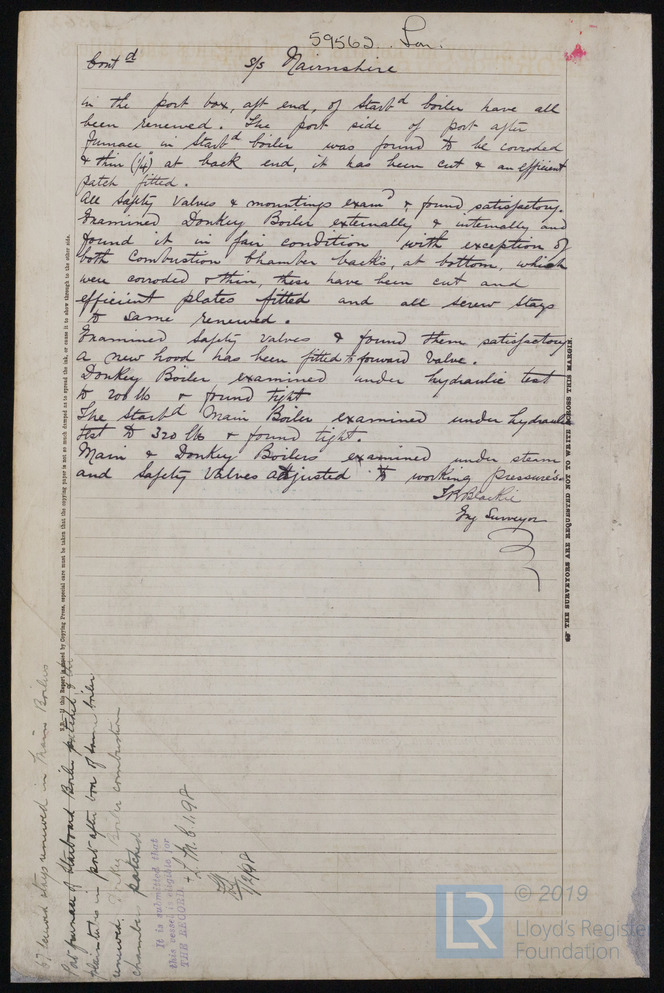 59562 Lon.
Contd s/s Nairnshire
in the port box, aft end, of Startd boiler have all
been renewed. The port side of port after
Furnace in Startd boiler was found to be corroded
& thin (1/4") at back end, it has been cut & an efficient
patch fitted.
All Safety Valves & mountings examd & found satisfactory.
Examined Donkey Boiler externally & internally and
found it in fair condition with exception of
both Combustion Chamber backs, at bottom, which
were corroded & thin, these have been cut and
efficient plates fitted and all screw stays
to same renewed.
Examined Safety Valves & found them satisfactory
a new hood has been fitted to forward Valve.
Donkey Boiler examined under hydraulic test
to 200 lb & found tight
The Startd Main Boiler examined under hydraulic
test to 320 lbs & found tight.
Main & Donkey Boilers examined under steam
and Safety Valves adjusted to working pressures.
Blackie
Eng Surveyor
THE SURVEYORS ARE REQUESTED NOT TO WRITE ACROSS THIS MARGIN.
N.B.—If this Report is copied by Copying Press, especial care must be taken that the copying paper is not so much damped as to spread the ink, or cause it to show through to the other side.
67 screwed stays renewed in Main Boilers
Port furnace of Starboard Boiler patched & the
plain tubes in port after box of same boiler
renewed. Donkey Boiler combustion
chambers patched
It is submitted that
this vessel is eligible for
THE RECORD
+ L.M.C. 1.98
© 2019
Lloyd's Register
Foundation
LR